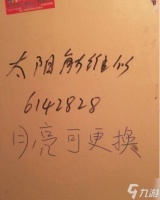 太阳能维修
6142828
月亮可更换
九游